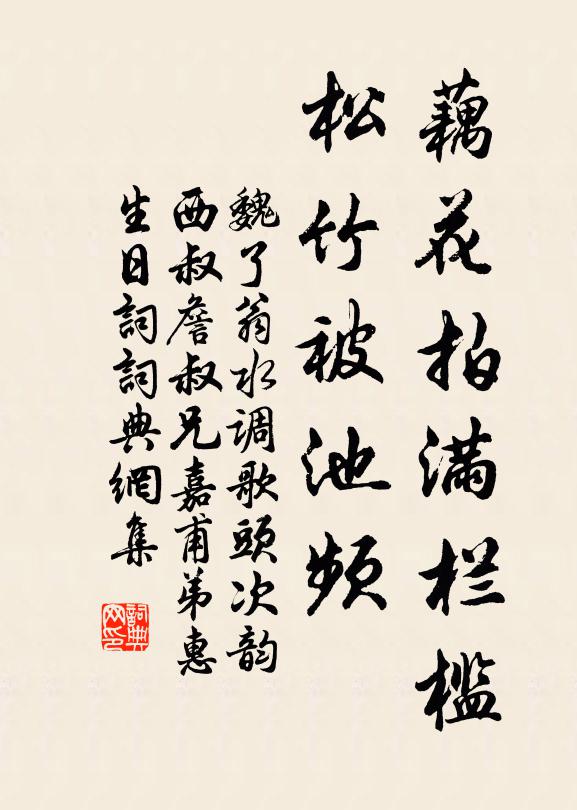 藕花拍满栏槛
松竹被池频
魏了翁水调歌頭次韵
西叔詹叔兄嘉甫弟惠
生日詞詞典網集
詞典
网印